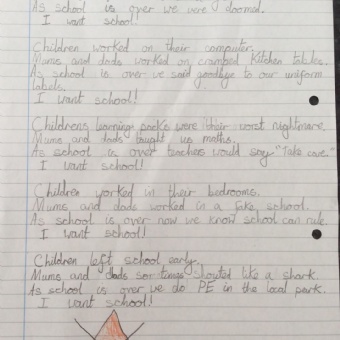 As school is over we were doomed.
I want school!
Children worked on their computer.
Mums and dads worked on cramped kitchen tables.
As school is over we said goodbye to our uniform
labels.
I want school!
Childrens learning packs were their worst nightmare.
Mums and dads taught us maths.
As school is over teachers would say "Take care."
I want school!
Children worked in their bedrooms.
Mums and dads worked in a fake school.
As school is over now we know school can rule.
I want school!
Children left school early.
Mums and dads shouted like a shark.
As school is over we do PE in the local park.
I want school!